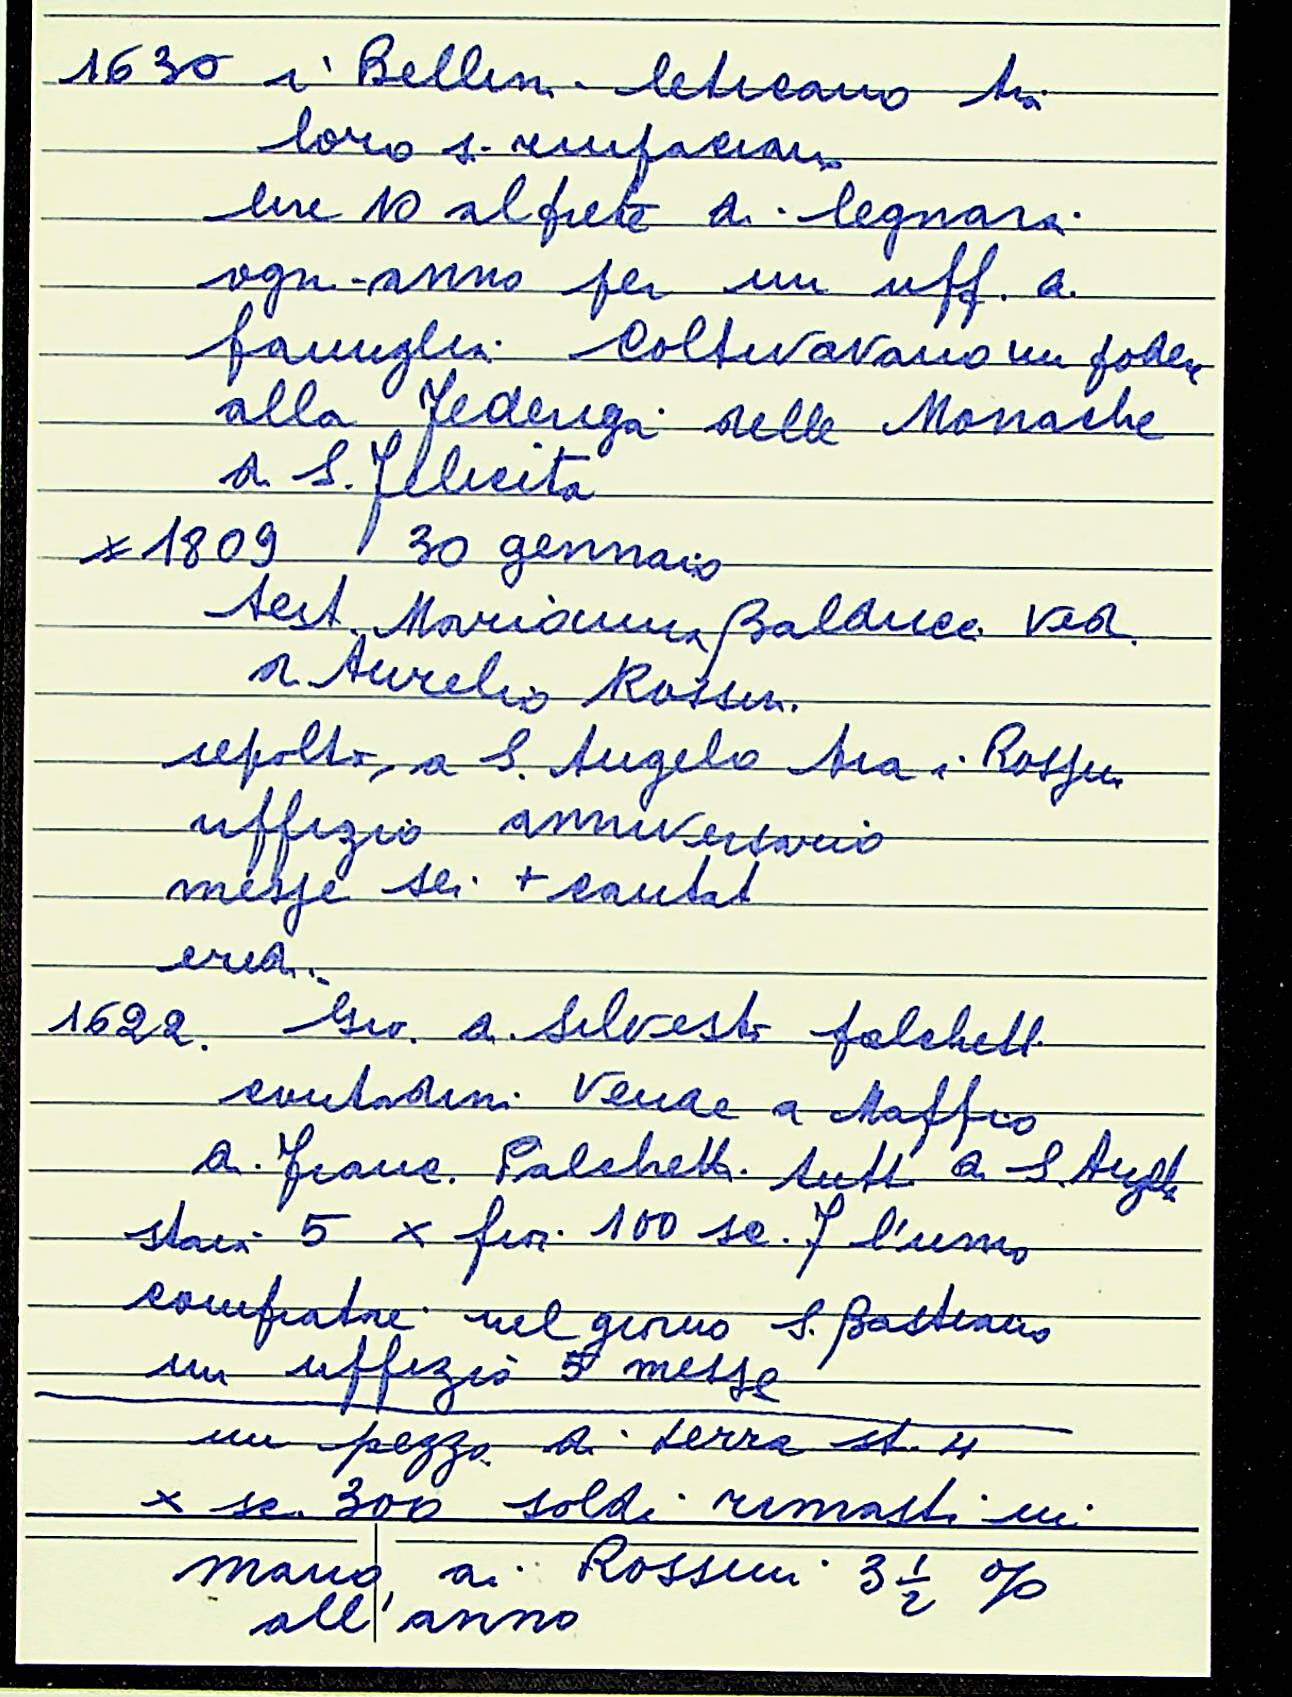 1630 i Bellini leticano tra
loro si rinfacciano
lire 10 al prete di Legnaia
ogni anno per un uff. di
famiglia. Coltivavano un podere
alla Federiga delle Monache
di S. Felicita
x 1809 30 gennaio
test. Marianna Balducci ved.
di Aurelio Rossini
sepolta a S. Angelo tra i Rossini
uffizio anniversario
messe sei + cantat
eredi
1622. Gio. di Silvestro falchetti
contadini vende a Maffio
di Franc. Palchetti tutti di S. Angelo
staia 5 x fior. 100 se. 7 l'uno
nel giorno S. Bastiano
un uffizio 5 messe
un pezzo di terra st. 4
x sc. 300 soldi rimasti in
mano ai Rossini 3 1/2 %
all'anno